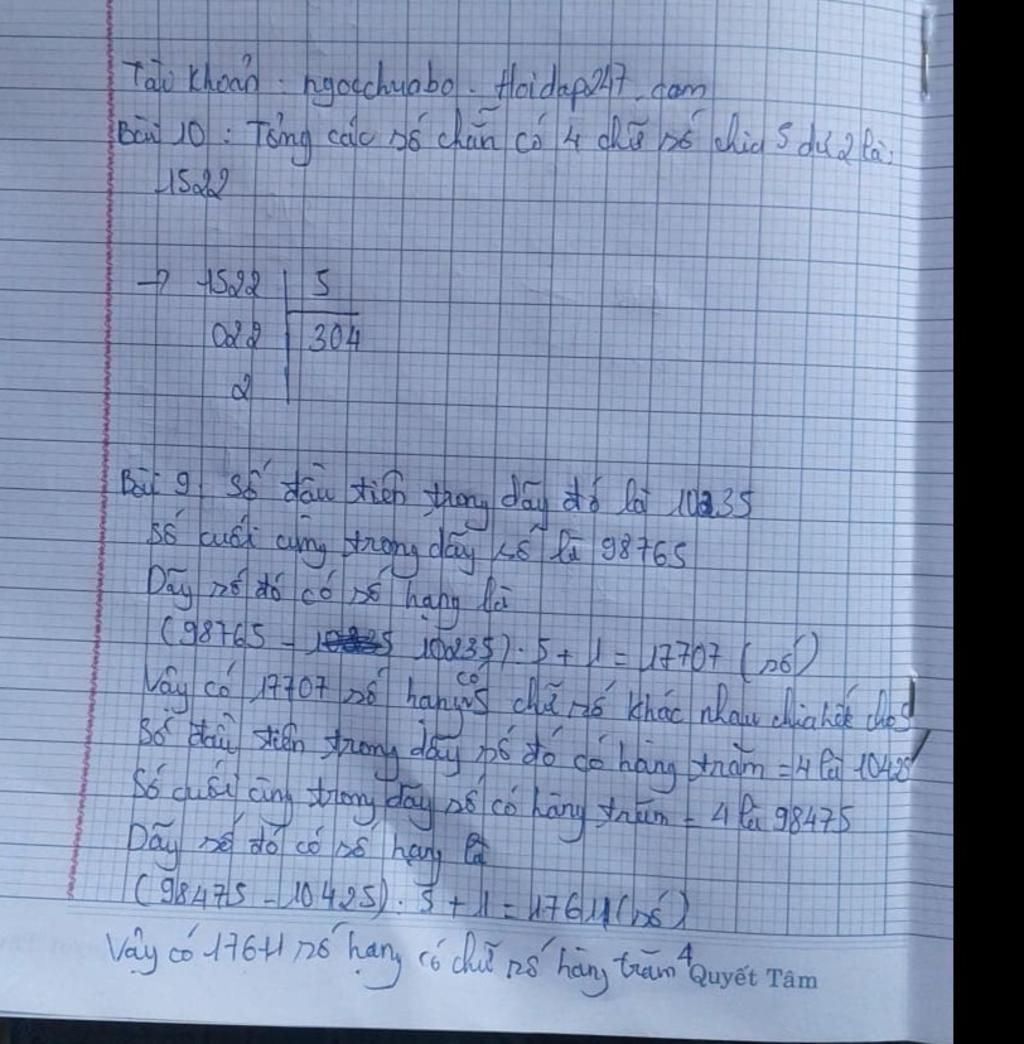 Tài khoản : ngocchuabo . Hoidap247.com
Bài 10 : Tổng các số chẵn có 4 chữ số chia 5 dư 2 là:
1522
→ 1522 | 5
022 | 304
2
Bài 9 Số đầu tiên trong dãy đó là 10235
Số cuối cùng trong dãy số là 98765
Dãy số đó có số hạng là
(98765 - 10235) : 5 + 1 = 17707 (số)
Vậy có 17707 số hạng có 5 chữ số khác nhau chia hết cho 5
Số đầu tiên trong dãy số đó có hàng trăm = 4 là 10425
Số cuối cùng trong dãy số có hàng trăm = 4 là 98475
Dãy số đó có số hạng là
(98475 - 10425) : 5 + 1 = 17611 (số)
Vậy có 17611 số hạng có chữ số hàng trăm 4
Quyết Tâm